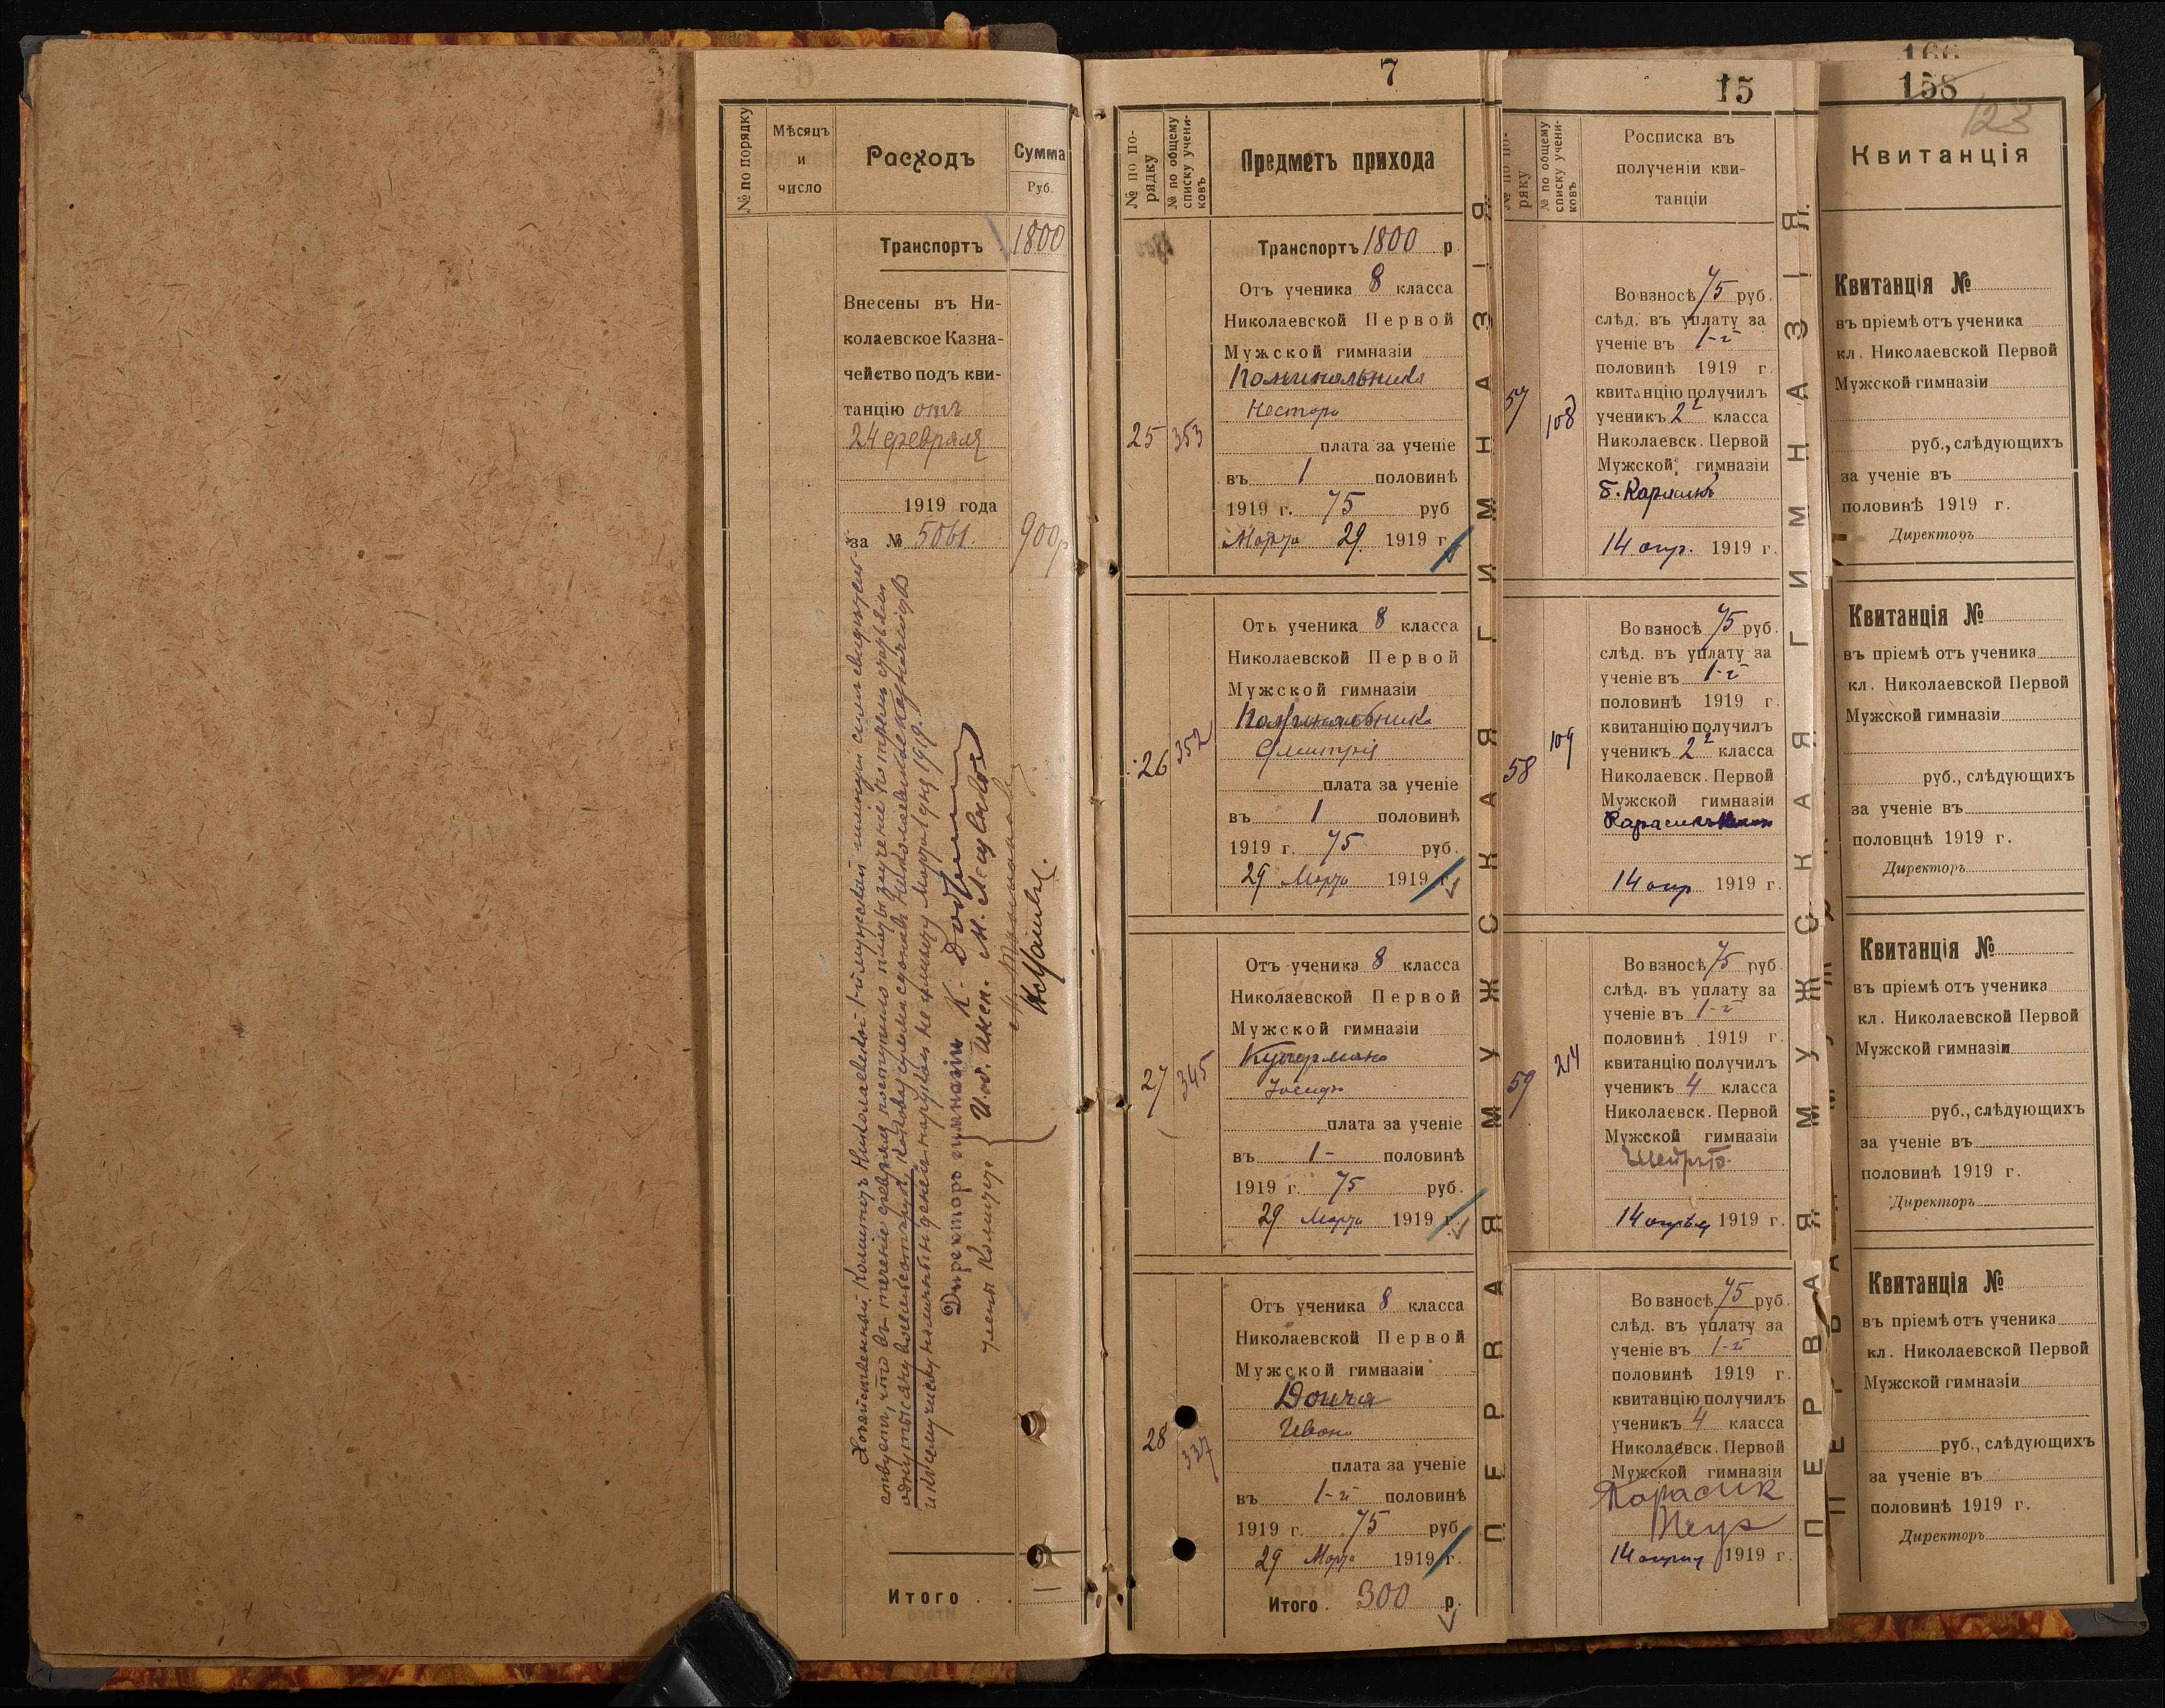 № по порядку
Мѣсяцъ
и
число
Расходъ
Сумма
Руб.
Транспортъ 1800
Внесены въ Ни-
колаевское Казна-
чейство подъ кви-
танцію отъ
24 февраля
1919 года
за № 5061. 900р
Хозяйственный Комитетъ Николаевской 1-й мужской гимназіи симъ свидѣтель-
ствуетъ, что въ теченіе февраля поступило платы за ученіе по тремъ
одну тысячу восемьсотъ руб., каковая сумма сдана въ Николаевское казначейство
и къ сему числу наличныхъ денегъ на рукахъ не имѣется. Марта 1 дня 1919 г.
Директоръ гимназіи К.
Члены Комитета И. об. Инсп. М.
Итого . . —
7
№ по по-
рядку
№ по общему
списку учени-
ковъ
Предметъ прихода
Транспортъ 1800 р.
Отъ ученика 8 класса
Николаевской Первой
Мужской гимназіи
Поминальника
Нестора
25 353
плата за ученіе
въ 1 половинѣ
1919 г. 75 руб
Марта 29 1919 г.
Отъ ученика 8 класса
Николаевской Первой
Мужской гимназіи
Поминальника
Дмитрія
26 352
плата за ученіе
въ 1 половинѣ
1919 г. 75 руб.
29 Марта 1919 г.
Отъ ученика 8 класса
Николаевской Первой
Мужской гимназіи
Купермана
Іосифа
27 345
плата за ученіе
въ 1- половинѣ
1919 г. 75 руб.
29 Марта 1919 г.
Отъ ученика 8 класса
Николаевской Первой
Мужской гимназіи
Донча
Ивана
28 337
плата за ученіе
въ 1-й половинѣ
1919 г. 75 руб
29 Марта 1919 г.
Итого . 300 р.
ПЕРВАЯ МУЖСКАЯ ГИМНАЗІЯ
15
№ по по-
ряку
№ по общему
списку учени-
ковъ
Росписка въ
полученіи кви-
танціи
Во взносѣ 75 руб.
слѣд. въ уплату за
ученіе въ 1-й
половинѣ 1919 г.
квитанцію получилъ
57 108
ученикъ 2² класса
Николаевск. Первой
Мужской гимназіи
Б. Карасикъ
14 апр. 1919 г.
Во взносѣ 75 руб.
слѣд. въ уплату за
ученіе въ 1-й
половинѣ 1919 г.
квитанцію получилъ
58 109
ученикъ 2² класса
Николаевск. Первой
Мужской гимназіи
Карасикъ
14 апр 1919 г.
Во взносѣ 75 руб.
слѣд. въ уплату за
ученіе въ 1-й
половинѣ 1919 г.
квитанцію получилъ
59 214
ученикъ 4 класса
Николаевск. Первой
Мужской гимназіи
14 апрѣля 1919 г.
Во взносѣ 75 руб.
слѣд. въ уплату за
ученіе въ 1-й
половинѣ 1919 г.
квитанцію получилъ
ученикъ 4 класса
Николаевск. Первой
Мужской гимназіи
Карасик
14 апрѣля 1919 г.
ПЕРВАЯ МУЖСКАЯ ГИМНАЗІЯ.
166
158
123
Квитанція
Квитанція №
въ пріемѣ отъ ученика
кл. Николаевской Первой
Мужской гимназіи
руб., слѣдующихъ
за ученіе въ
половинѣ 1919 г.
Директоръ
Квитанція №
въ пріемѣ отъ ученика
кл. Николаевской Первой
Мужской гимназіи
руб., слѣдующихъ
за ученіе въ
половцнѣ 1919 г.
Директоръ
Квитанція №
въ пріемѣ отъ ученика
кл. Николаевской Первой
Мужской гимназіи
руб., слѣдующихъ
за ученіе въ
половинѣ 1919 г.
Директоръ
Квитанція №
въ пріемѣ отъ ученика
кл. Николаевской Первой
Мужской гимназіи
руб., слѣдующихъ
за ученіе въ
половинѣ 1919 г.
Директоръ